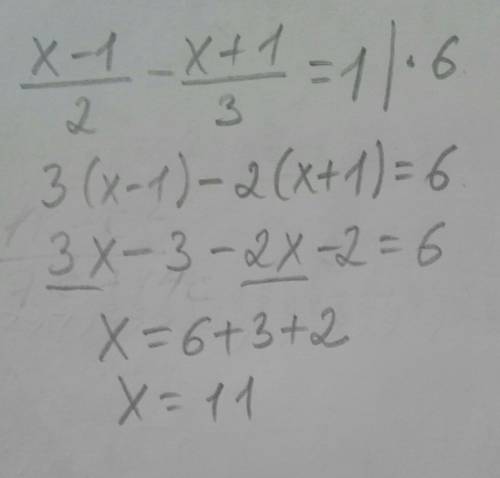 (x-1)/2 - (x+1)/3 = 1 | · 6
3(x-1)-2(x+1)=6
3x-3-2x-2=6
x=6+3+2
x=11